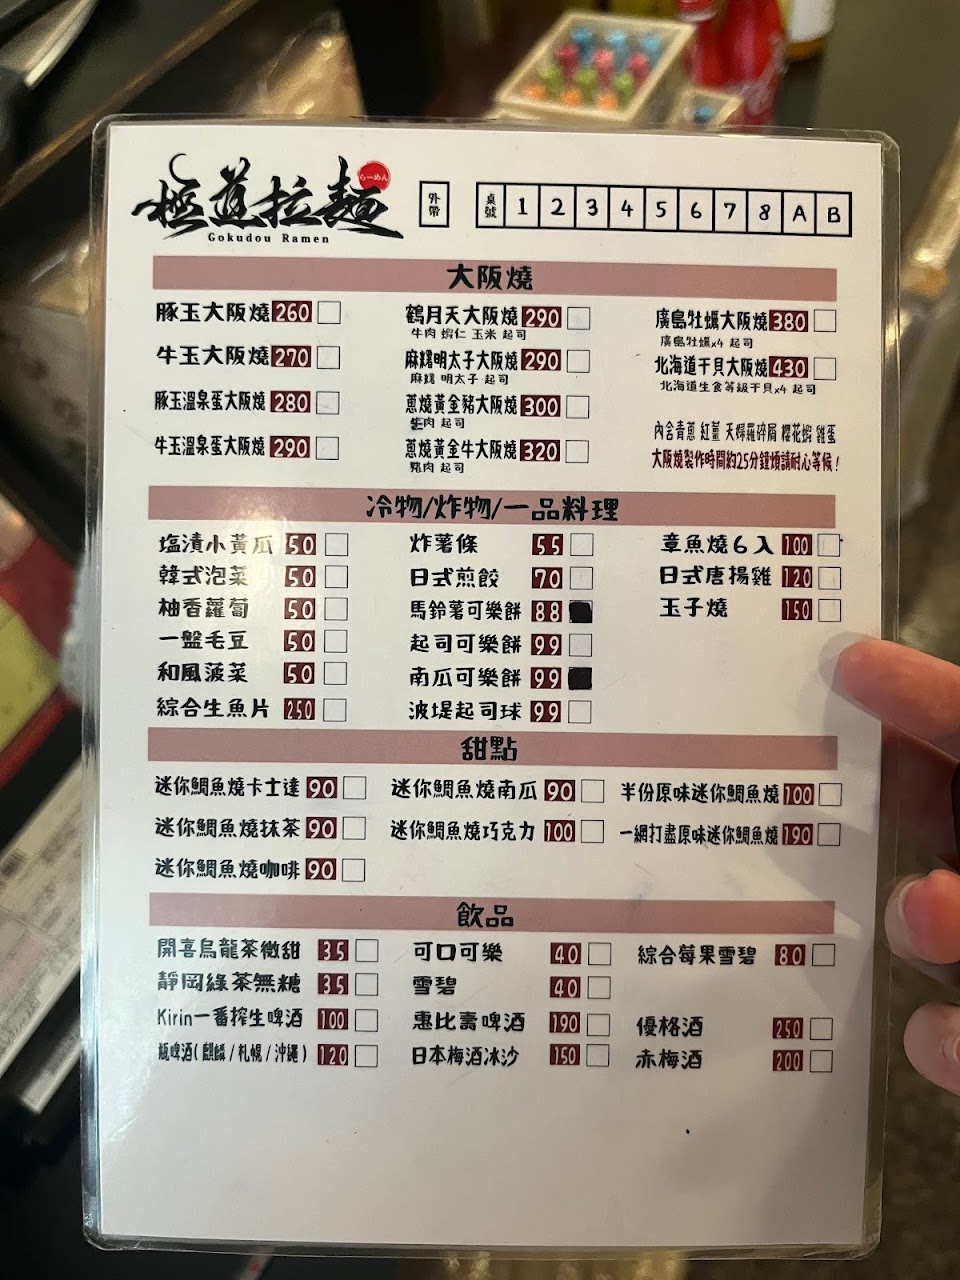 極道拉麵 らーめん
Gokudou Ramen
外帶
桌號 1 2 3 4 5 6 7 8 A B
大阪燒
豚玉大阪燒 260
牛玉大阪燒 270
豚玉溫泉蛋大阪燒 280
牛玉溫泉蛋大阪燒 290
鶴月天大阪燒 290
牛肉 蝦仁 玉米 起司
麻糬明太子大阪燒 290
麻糬 明太子 起司
蔥燒黃金豬大阪燒 300
牛肉 起司
蔥燒黃金牛大阪燒 320
豬肉 起司
廣島牡蠣大阪燒 380
廣島牡蠣x4 起司
北海道干貝大阪燒 430
北海道生食等級干貝x4 起司
內含青蔥 紅薑 天婦羅碎屑 櫻花蝦 雞蛋
大阪燒製作時間約25分鐘煩請耐心等候！
冷物/炸物/一品料理
塩漬小黃瓜 50
韓式泡菜 50
柚香蘿蔔 50
一盤毛豆 50
和風菠菜 50
綜合生魚片 250
炸薯條 55
日式煎餃 70
馬鈴薯可樂餅 88
起司可樂餅 99
南瓜可樂餅 99
波堤起司球 99
章魚燒6入 100
日式唐揚雞 120
玉子燒 150
甜點
迷你鯛魚燒卡士達 90
迷你鯛魚燒抹茶 90
迷你鯛魚燒咖啡 90
迷你鯛魚燒南瓜 90
迷你鯛魚燒巧克力 100
半份原味迷你鯛魚燒 100
一網打盡原味迷你鯛魚燒 190
飲品
開喜烏龍茶微甜 35
靜岡綠茶無糖 35
Kirin一番搾生啤酒 100
瓶啤酒(麒麟/札幌/沖繩) 120
可口可樂 40
雪碧 40
惠比壽啤酒 190
日本梅酒冰沙 150
綜合莓果雪碧 80
優格酒 250
赤梅酒 200